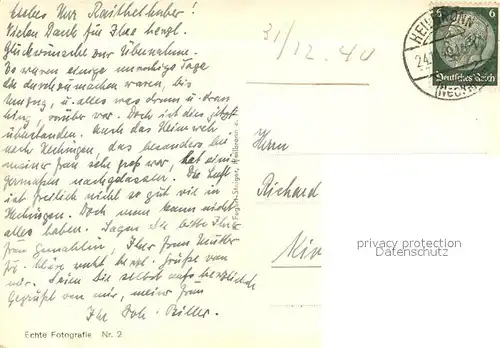 Liebes Herr
Vielen Dank für Ihre herzl.
Glückwünsche zur Übernahme.
Es waren einige unruhige Tage
die durchzumachen waren, bis
Umzug, u. alles was drum u. dran
hing, vorüber war. Doch ist dies jetzt
überstanden. Auch das Heimweh
nach Hechingen, das besonders bei
meiner Frau sehr groß war, hat eini-
germaßen nachgelassen. Die Luft
ist freilich nicht so gut wie in
Hechingen. Doch man kann nicht
alles haben. Sagen Sie bitte Ihrer
Frau Gemahlin, Ihrer Frau Mutter
Frl. Kläre recht herzl. Grüße von
mir. Seien Sie selbst aufs herzlichste
Gegrüßt von mir, meiner Frau
Ihr
Echte Fotografie Nr. 2
31/12.40
Herrn
Richard
HEILBRONN
24.
(NECKAR)
6
Deutsches Reich
privacy protection
Datenschutz